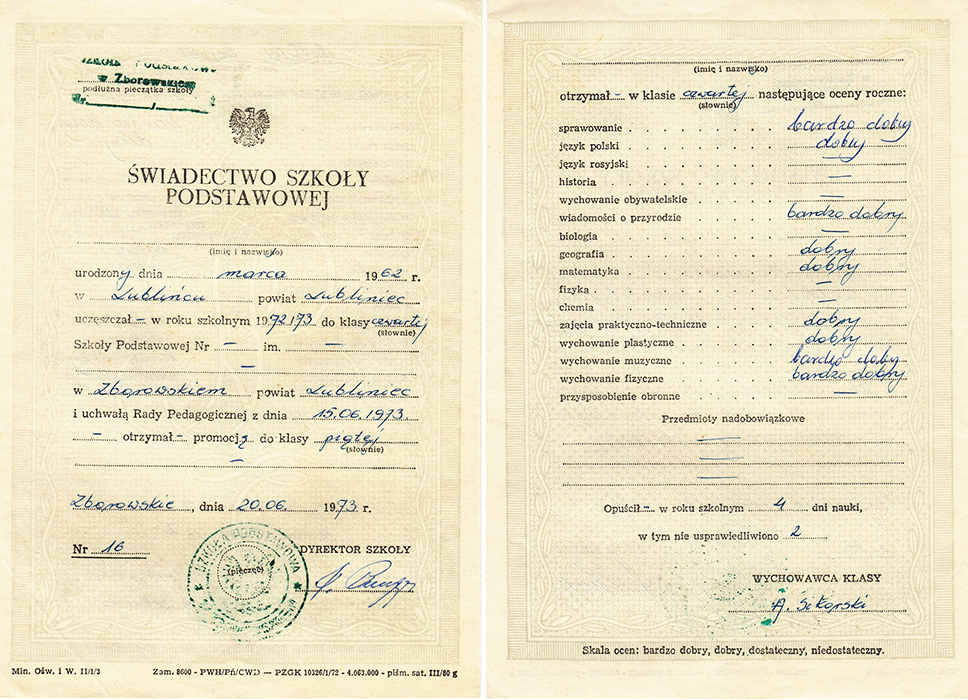 w Zborowskiem
podłużna pieczątka szkoły
ŚWIADECTWO SZKOŁY
PODSTAWOWEJ
(imię i nazwisko)
urodzony dnia marca 1962 r.
w Lublińcu powiat Lubliniec
uczęszczał – w roku szkolnym 1972/73 do klasy czwartej
(słownie)
Szkoły Podstawowej Nr – im. –
–
w Zborowskiem powiat Lubliniec
i uchwałą Rady Pedagogicznej z dnia 15.06.1973.
– otrzymał – promocję do klasy piątej
(słownie)
–
Zborowskie, dnia 20.06. 1973 r.
Nr 16
DYREKTOR SZKOŁY
SZKOŁA PODSTAWOWA
(pieczęć)
Min. Ośw. i W. II/1/3 Zam. 8600 - PWH/Pń/CWD — PZGK 10326/1/72 - 4.063.000 - piśm. sat. III/80 g
(imię i nazwisko)
otrzymał – w klasie czwartej następujące oceny roczne:
(słownie)
sprawowanie . . . . . . . bardzo dobry
język polski . . . . . . . dobry
język rosyjski . . . . . . . —
historia . . . . . . . —
wychowanie obywatelskie . . . . . —
wiadomości o przyrodzie . . . . . bardzo dobry
biologia . . . . . . . —
geografia . . . . . . . dobry
matematyka . . . . . . . dobry
fizyka . . . . . . . —
chemia . . . . . . . —
zajęcia praktyczno-techniczne . . . . dobry
wychowanie plastyczne . . . . . dobry
wychowanie muzyczne . . . . . bardzo dobry
wychowanie fizyczne . . . . . bardzo dobry
przysposobienie obronne . . . . . —
Przedmioty nadobowiązkowe
—
—
—
Opuścił – w roku szkolnym 4 dni nauki,
w tym nie usprawiedliwiono 2
WYCHOWAWCA KLASY
A. Sikorski
Skala ocen: bardzo dobry, dobry, dostateczny, niedostateczny.